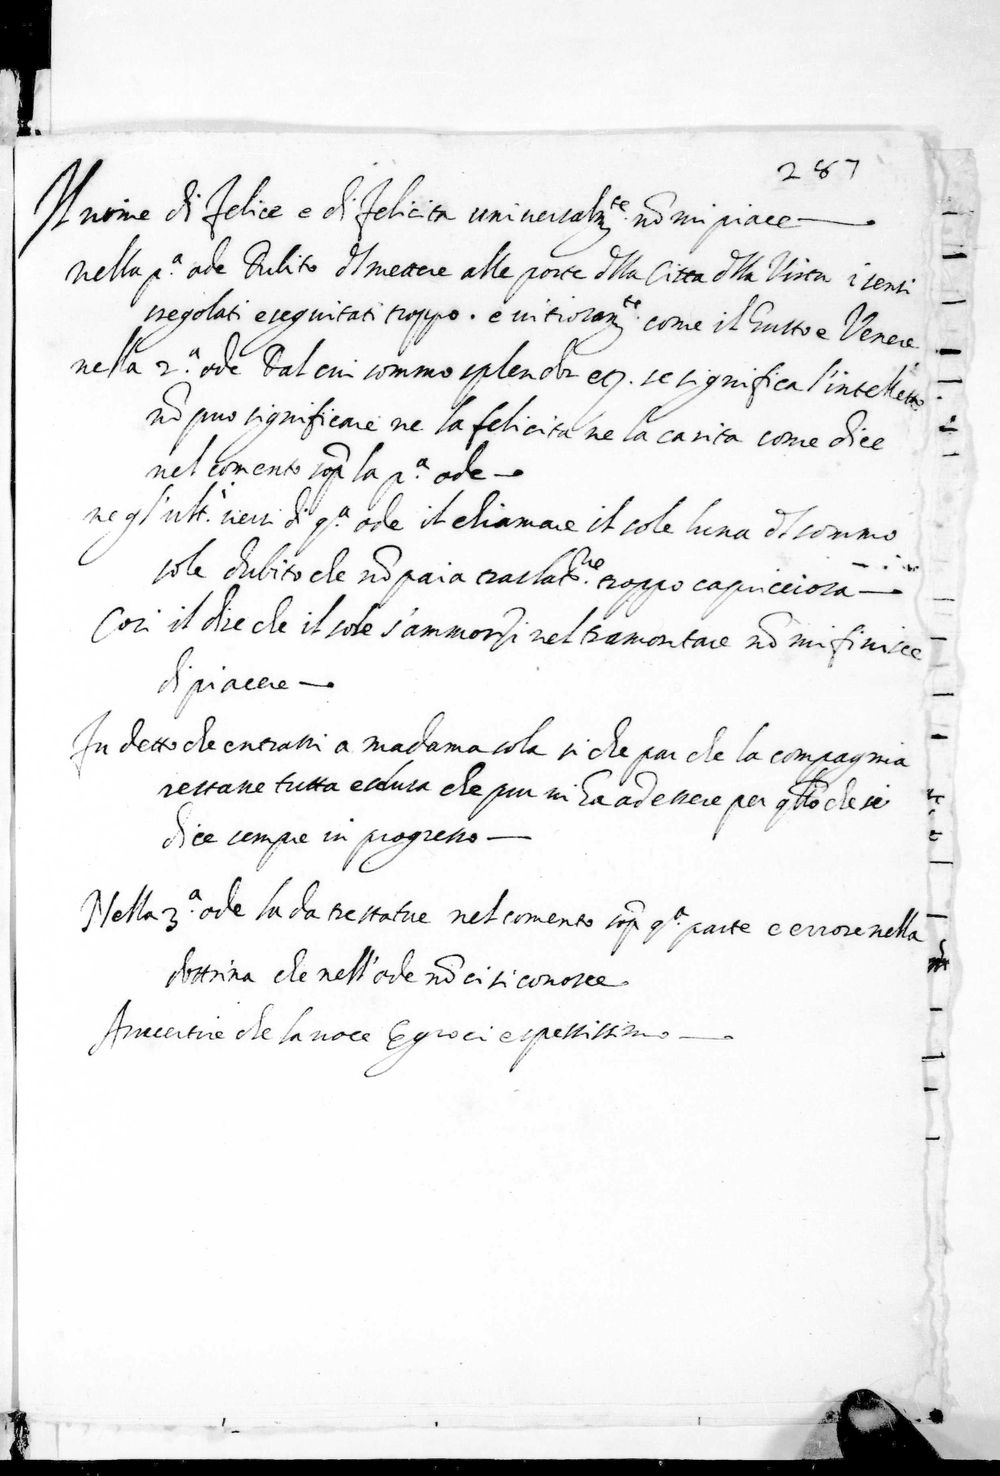 287
Il nome di felice e di felicita universalmte. nō mi piace
nella pa. ode Dubito dl mettere alle porte dlla Citta dlla Virtu i sensi
sregolati e seguitati troppo. e vitiosamte. come il Gusto e Venere
nella 2a. ode Dal cui sommo splendor se significa l'intelletto
nō puo significare ne la felicita ne la carita come dice
nel comento sopa la pa. ode
negl'ulti. versi di qa. ode il chiamare il sole luna dl sommo
sole dubito che nō paia traslatne. troppo capricciosa
Cosi il dire che il sole s'ammorzi nel tramontare nō mi finisce
di piacere
Fu detto che entrassi a madama sola si che par che la compagnia
restasse tutta esclusa che pur vi ha ad essere per qllo che si
dice sempre in progresso
Nella 3a. ode la da trestatue nel comento sopa qa. parte e errore nella
dottrina che nell'ode nō ci si conosce
Avvertire che la voce Egroci e spessissimo